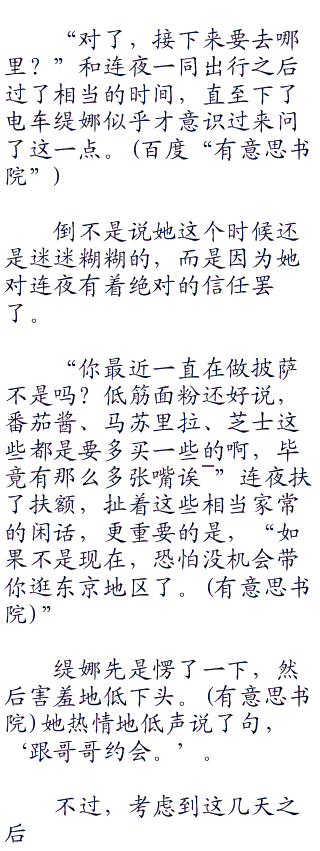 “对了，接下来要去哪
里？”和连夜一同出行之后
过了相当的时间，直至下了
电车缇娜似乎才意识过来问
了这一点。(百度“有意思书
院”)
倒不是说她这个时候还
是迷迷糊糊的，而是因为她
对连夜有着绝对的信任罢
了。
“你最近一直在做披萨
不是吗？低筋面粉还好说，
番茄酱、马苏里拉、芝士这
些都是要多买一些的啊，毕
竟有那么多张嘴诶¯”连夜扶
了扶额，扯着这些相当家常
的闲话，更重要的是，“如
果不是现在，恐怕没机会带
你逛东京地区了。(有意思书
院)”
缇娜先是愣了一下，然
后害羞地低下头。(有意思书
院)她热情地低声说了句，
‘跟哥哥约会。’。
不过，考虑到这几天之
后